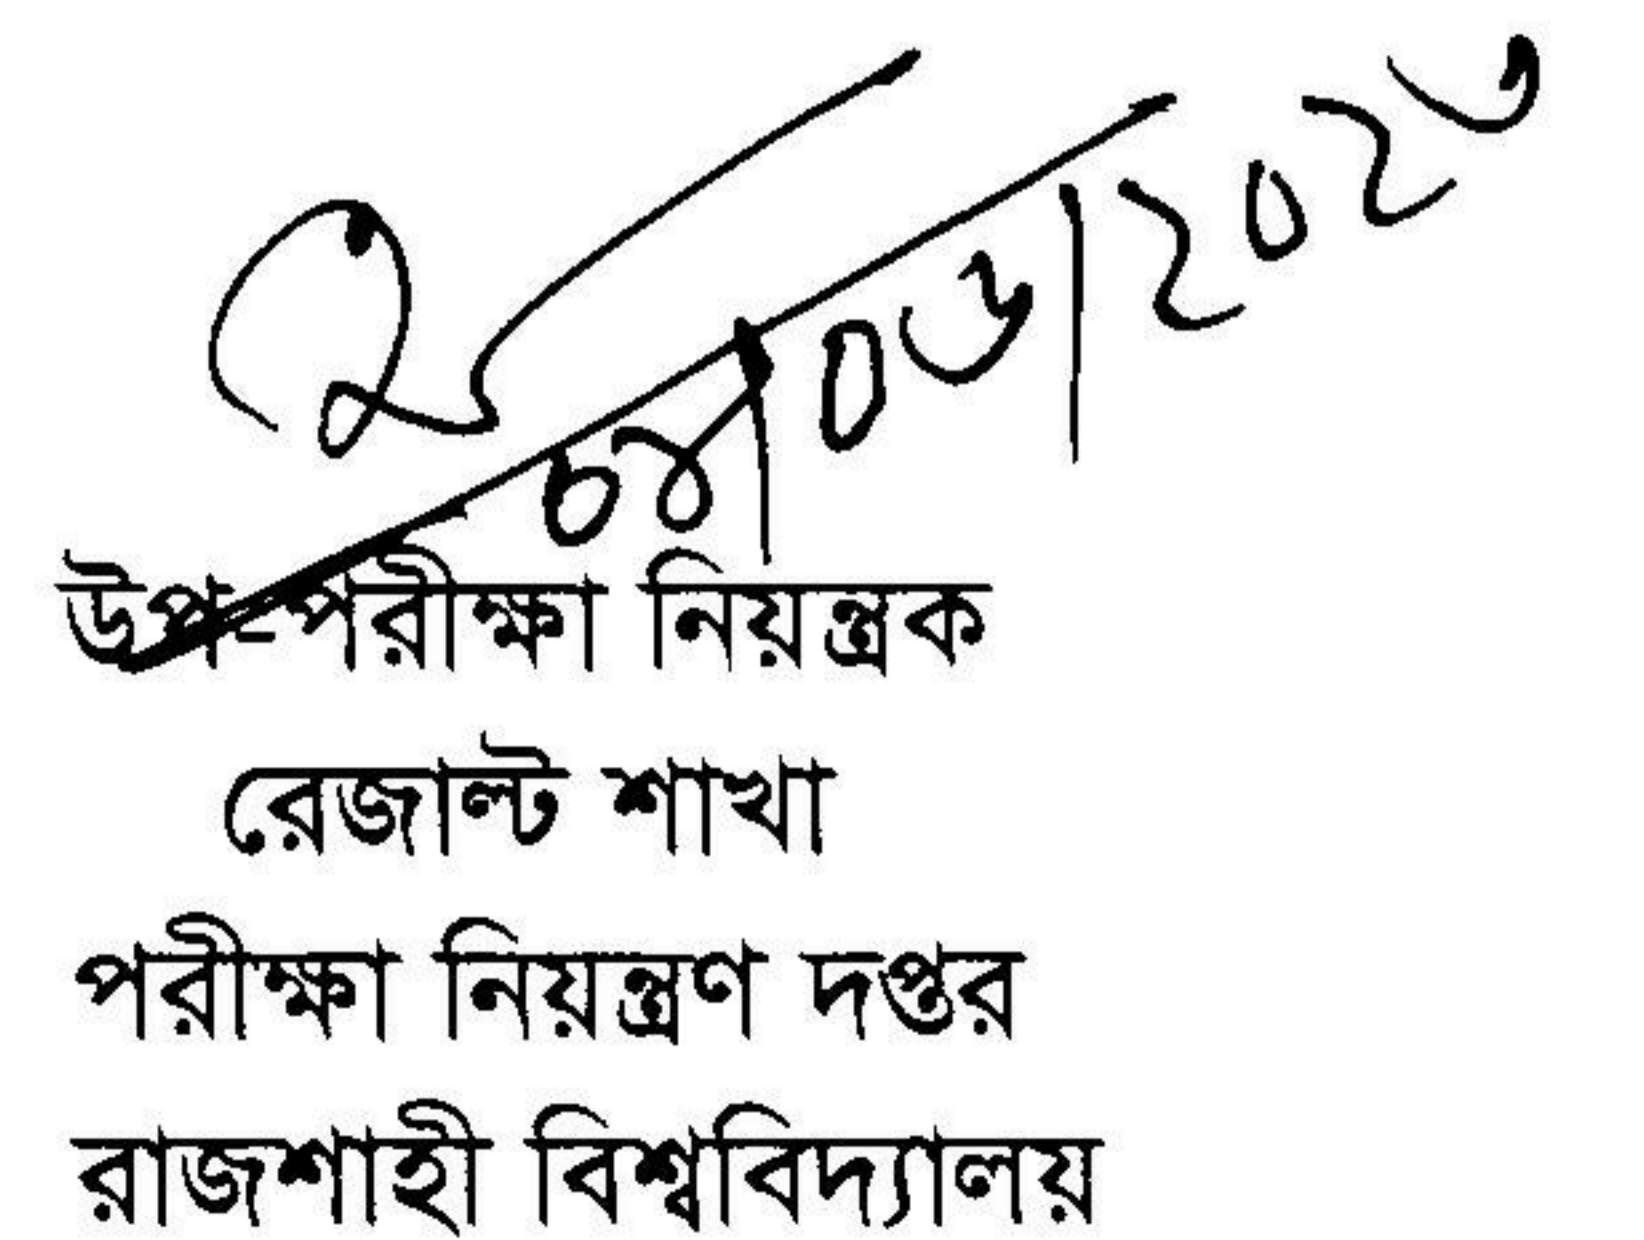 ০৪/০৬/২০২৩
উপ-পরীক্ষা নিয়ন্ত্রক
রেজাল্ট শাখা
পরীক্ষা নিয়ন্ত্রণ দপ্তর
রাজশাহী বিশ্ববিদ্যালয়